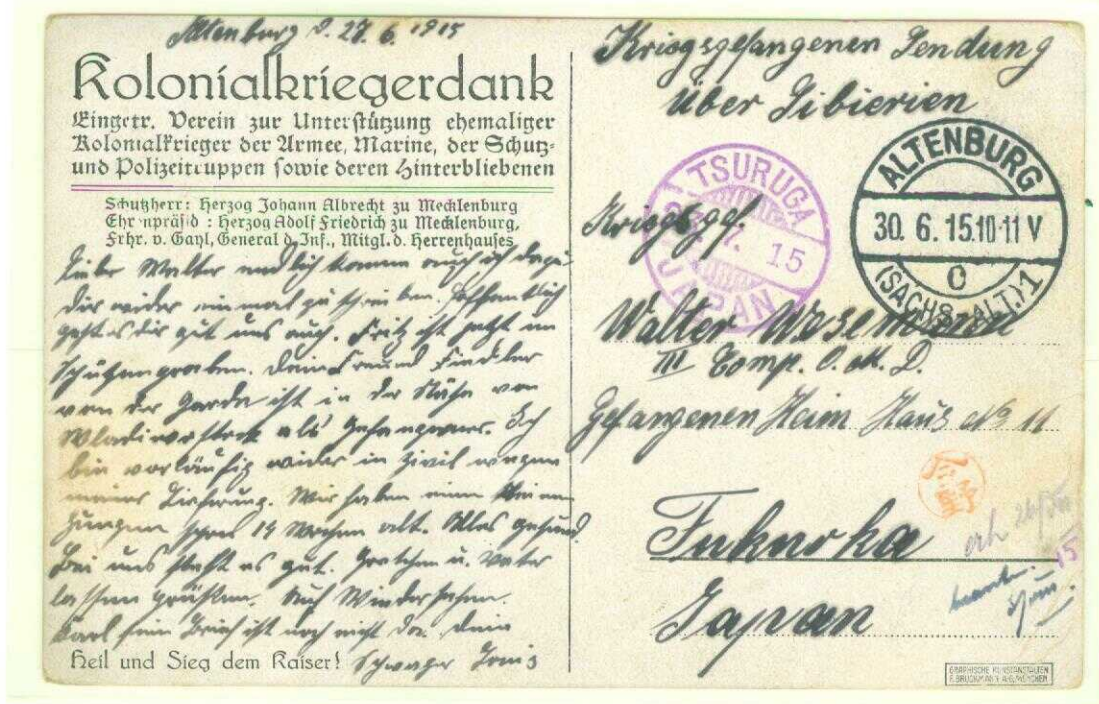 Altenburg d. 27. 6. 1915
Kolonialkriegerdank
Eingetr. Verein zur Unterstützung ehemaliger
Kolonialkrieger der Armee, Marine, der Schutz-
und Polizeitruppen sowie deren Hinterbliebenen
Schutzherr: Herzog Johann Albrecht zu Mecklenburg
Ehrenpräsid: Herzog Adolf Friedrich zu Mecklenburg,
Frhr. v. Gayl, General d. Inf., Mitgl. d. Herrenhauses
Liebe Walter endlich komme auch ich dazu
dir wieder einmal zu schreiben. Hoffentlich
geht es dir gut uns auch. Fritz ist jetzt im
Schützengraben. Dein Freund Fiedler
von der Garde ist in der Nähe von
Wladiwostock als Gefangener. Ich
bin vorläufig wieder in Zivil wegen
meiner. Wir haben einen kleinen
Jungen schon 14 Wochen alt. Alles gesund.
Bei uns steht es gut. Gretchen u. Vater
lassen grüßen. Auf Wiedersehen.
Karl sein Brief ist noch nicht da. Dein
Heil und Sieg dem Kaiser! Schwager
Kriegsgefangenen Sendung
über Sibierien
TSURUGA
7. 15
JAPAN
ALTENBURG
30. 6. 15.10-11 V
c
(SACHS.-ALT.) 1
Kriegsgef.
Walter
III Comp. O. M. D.
Gefangenen Heim Haus No 11
Fukuoka
Japan
15
GRAPHISCHE KUNSTANSTALTEN
F. BRUCKMANN A-G, MÜNCHEN